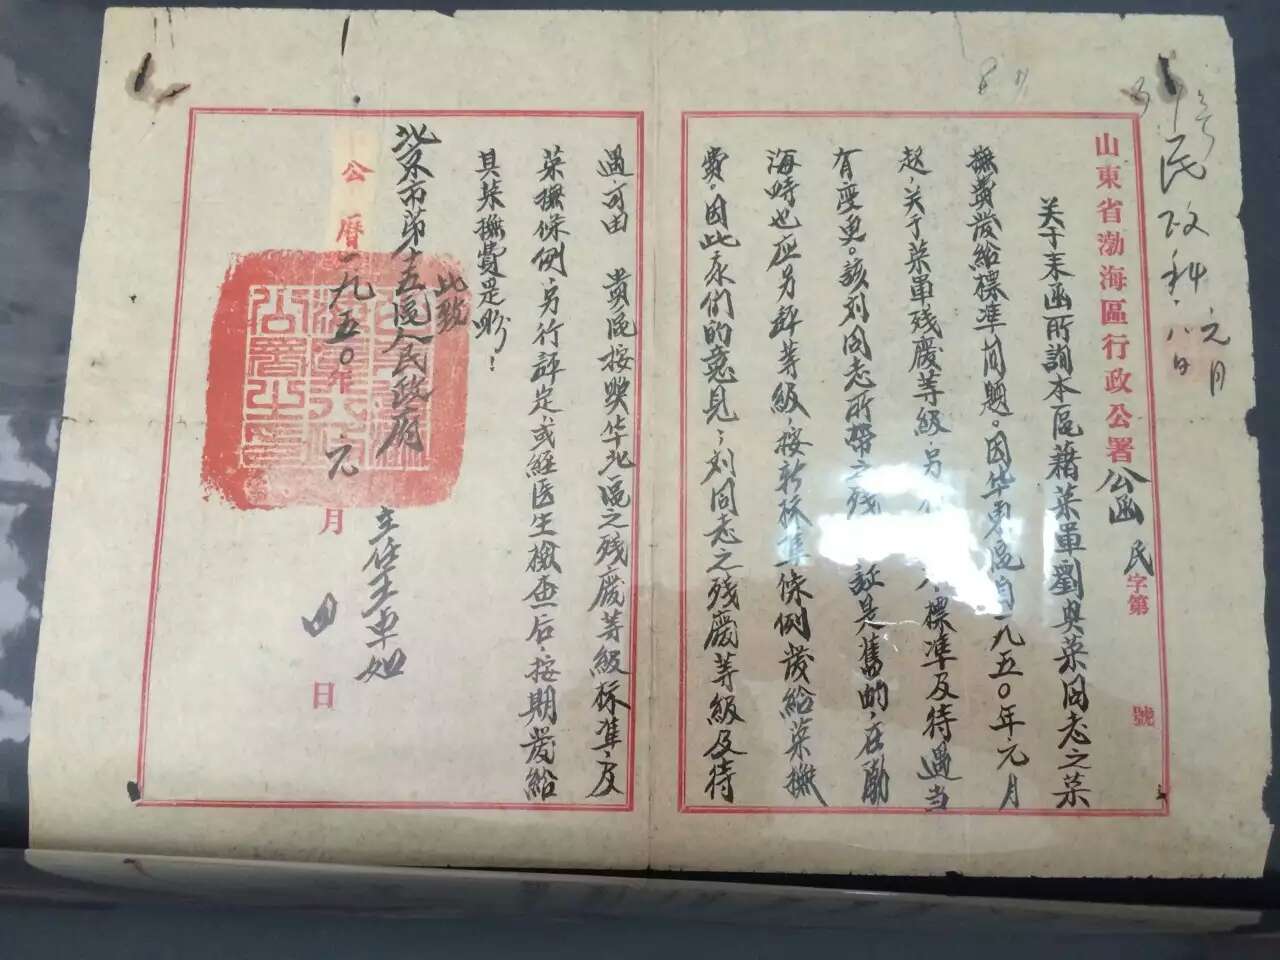 民政科
元月
八日
山東省渤海區行政公署公函 民字第 號
关于来函所詢本區藉荣軍劉與荣同志之荣
撫費發給標準問題。因华東區自一九五〇年元月
起,关于荣軍残廢等級,另 標準及待遇当
有变更。該刘同志所带之残 証是舊的,在勃
海時也应另評等級,按新标準條例發給荣撫
費,因此我們的意見,刘同志之残廢等級及待
遇,可由 貴區按照华北區之残廢等級标準,及
荣撫條例,另行評定,或經医生檢查后,按期發給
其荣撫費是盼!
此致
北京市第十五區人民政府
主任王卓如
公曆一九五〇年元月四日